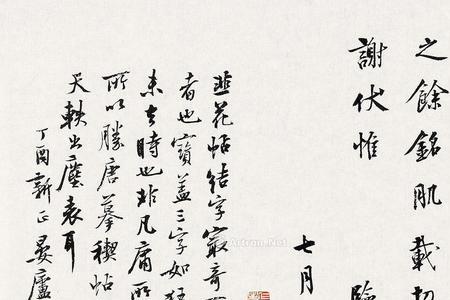 之餘銘肌載切
謝伏惟
臨
七月
韭花帖結字寂奇
者也寶蓋三字如狂
未有時也非凡庸所
所以勝唐摹稧帖
天軼出塵表耳
丁酉新正晏廬
Artron.Net